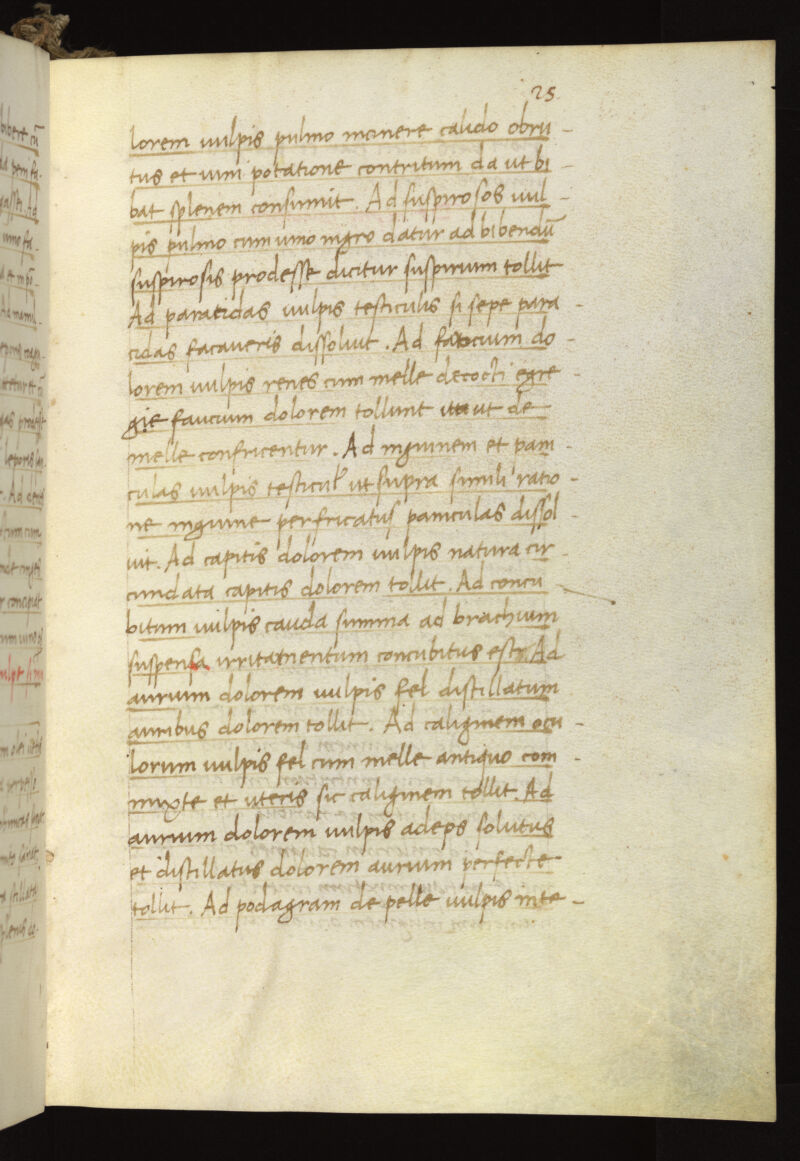 25
lorem uulpis pulmo incinere calido obru -
tus et uini potatione contritum da ut bi -
bat splenem consumit. Ad suspirosos uul -
pis pulmo cum uino nigro datur ad bibendū
suspirosis prodesse dicitur suspirium tollit
Ad paratidas uulpis testiculis si sepe para -
tidas facaueris dissoluit. Ad faucium do -
lorem uulpis renes cum melle decocti egre -
gie faucium dolorem tollunt ita ut de
melle confricentur. Ad inguinem et pani -
culas uulpis testicul ut supra simili ratio -
ne inguine perfricatus paniculas dissol -
uit. Ad capitis dolorem uulpis natura cir -
cundata capitis dolorem tollit. Ad concu -
bitum uulpis cauda summa ad brachium
suspensa irritamentum concubitus est. Ad
aurium dolorem uulpis fel distillatum
auribus dolorem tollit. Ad caliginem ocu -
lorum uulpis fel cum melle antiquo com -
mixte et uteris sic caliginem tollit. Ad
aurium dolorem uulpis adeps solutus
et distillatus dolorem aurium perfecte
tollit. Ad podagram de pelle uulpis inte -